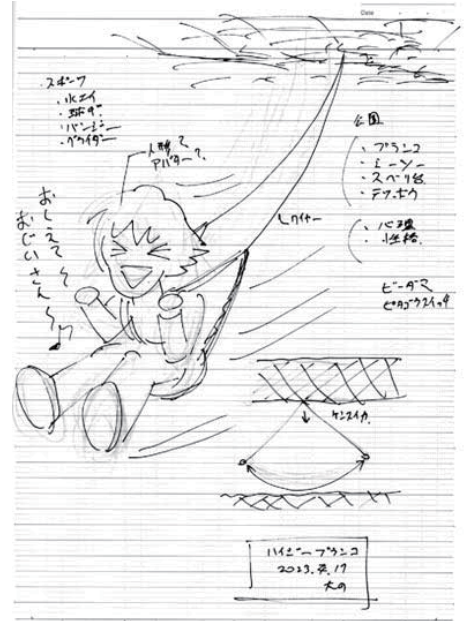 Date
・スポーツ
・水エイ
・球ギ
・バンジー
・グライダー
人形？
アバター？
おしえて〜
おじいさん〜♪
ワイヤー
公園
・ブランコ
・シーソー
・スベリ台
・テツボウ
・心理
・性格
ビーダマ
ピタゴラスイッチ
ケンスイカ
ハイジーブランコ
2023.7.17